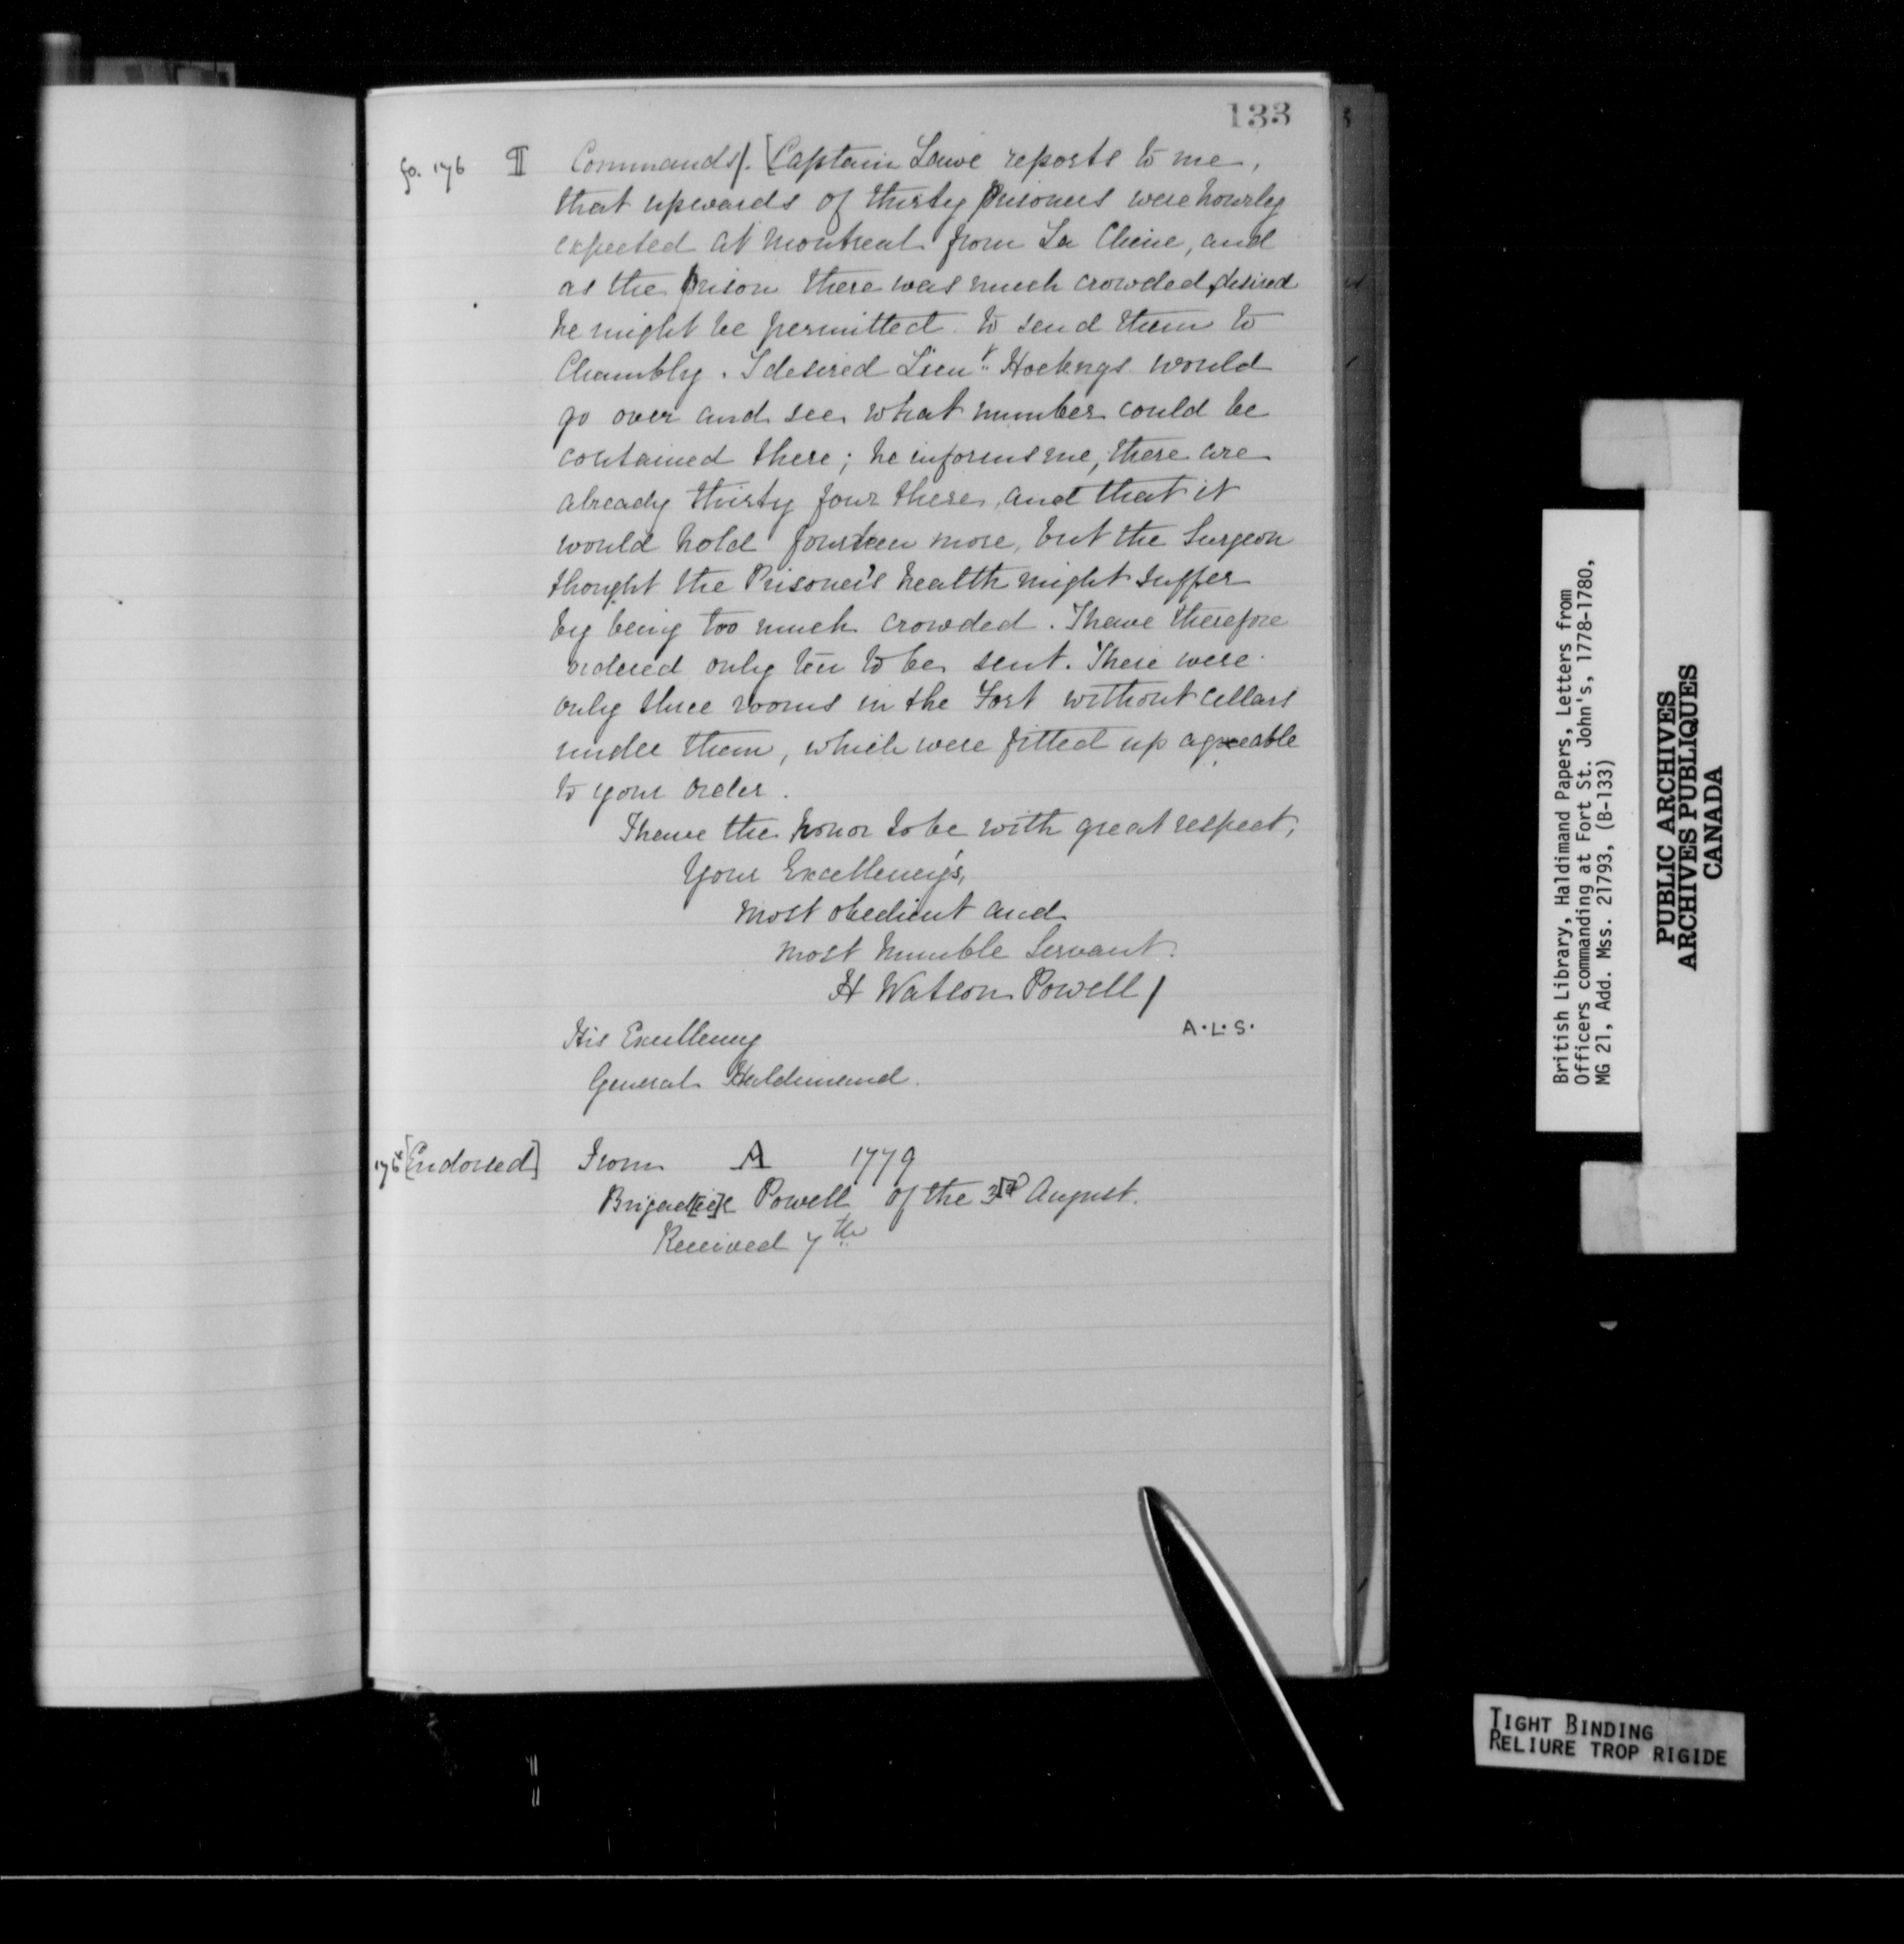 133
fo. 176 ¶ Commands/. [Captain Lawe reports to me,
that upwards of thirty Prisoners were hourly
expected at Montreal from La Chine, and
as the Prison there was much crowded, desired
he might be permitted to send them to
Chambly. I desired Lieut. Hockings would
go over and see what number could be
contained there; he informs me, there are
already thirty four there, and that it
would hold fourteen more, but the Surgeon
thought the Prisoner's health might suffer
by being too much crowded. I have therefore
ordered only ten to be sent. There were
only three rooms in the Fort without cellars
under them, which were fitted up agreeable
to your order.
I have the honor to be with great respect,
Your Excellency's,
most obedient and
most humble Servant.
H Watson Powell/
A.L.S.
His Excellency
General Haldimand.
[Endorsed] From A 1779
Brigad[ie]r Powell of the 3rd August.
Received 7th
British Library, Haldimand Papers, Letters from
Officers commanding at Fort St. John's, 1778-1780,
MG 21, Add. Mss. 21793, (B-133)
PUBLIC ARCHIVES
ARCHIVES PUBLIQUES
CANADA
TIGHT BINDING
RELIURE TROP RIGIDE